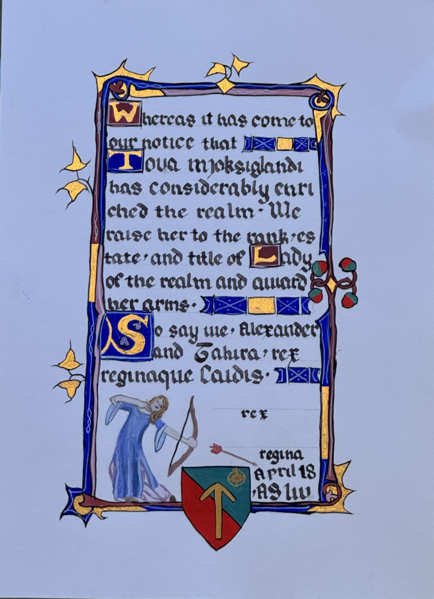 Whereas it has come to
our notice that
Tova Mjoksiglandi
has considerably enri
ched the realm · We
raise her to the rank, es
tate, and title of Lady
of the realm and award
her arms ·
So say we · Alexander
and Tahira · rex
reginaque Caidis ·
rex
regina
April 18
· AS liv